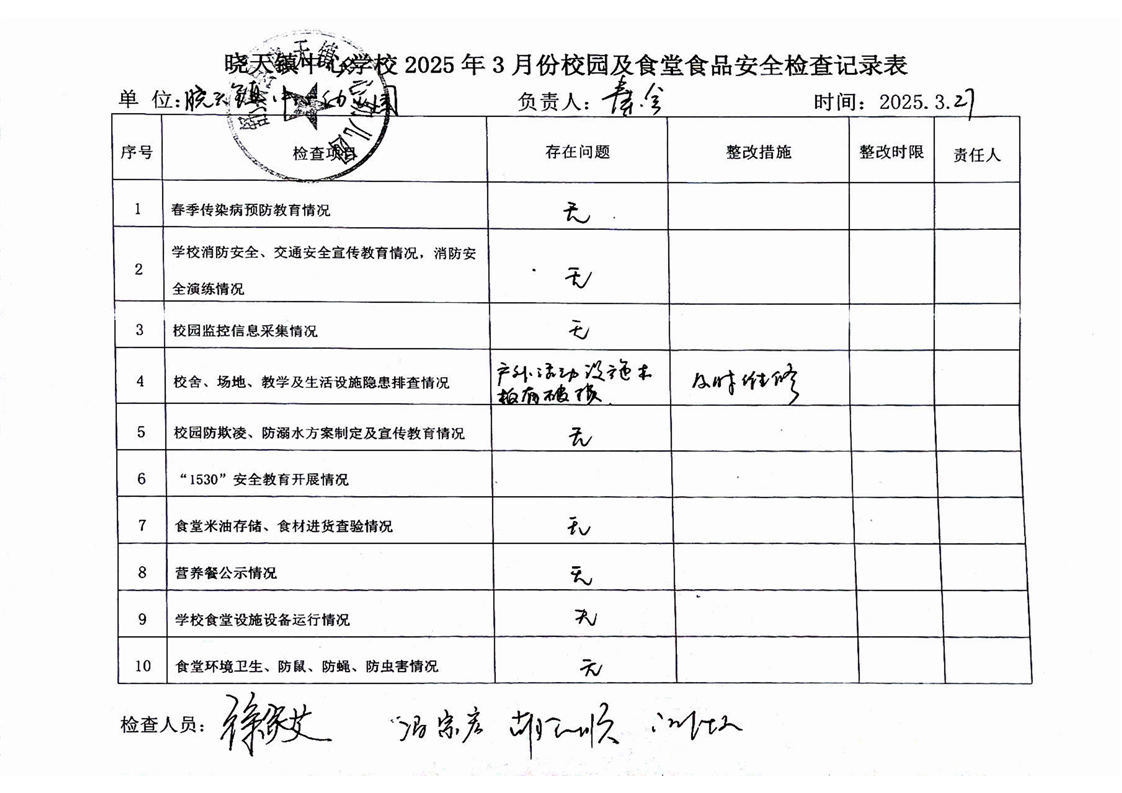 晓天镇中心学校 2025 年 3 月份校园及食堂食品安全检查记录表
单 位: 晓天镇中心幼儿园 负责人: 时间: 2025.3.27
序号 检查项目 存在问题 整改措施 整改时限 责任人
1 春季传染病预防教育情况 无
2 学校消防安全、交通安全宣传教育情况,消防安
全演练情况 无
3 校园监控信息采集情况 无
4 校舍、场地、教学及生活设施隐患排查情况 户外活动设施木
板有破损 及时维修
5 校园防欺凌、防溺水方案制定及宣传教育情况 无
6 “1530”安全教育开展情况
7 食堂米油存储、食材进货查验情况 无
8 营养餐公示情况 无
9 学校食堂设施设备运行情况 无
10 食堂环境卫生、防鼠、防蝇、防虫害情况 无
检查人员: